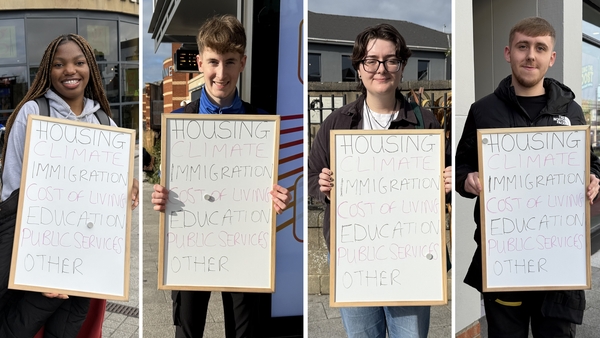 HOUSING
CLIMATE
IMMIGRATION
COST OF LIVING
EDUCATION
PUBLIC SERVICES
OTHER
HOUSING
CLIMATE
IMMIGRATION
COST OF LIVING
EDUCATION
PUBLIC SERVICES
OTHER
HOUSING
CLIMATE
IMMIGRATION
COST OF LIVING
EDUCATION
PUBLIC SERVICES
OTHER
HOUSING
CLIMATE
IMMIGRATION
COST OF LIVING
EDUCATION
PUBLIC SERVICES
OTHER